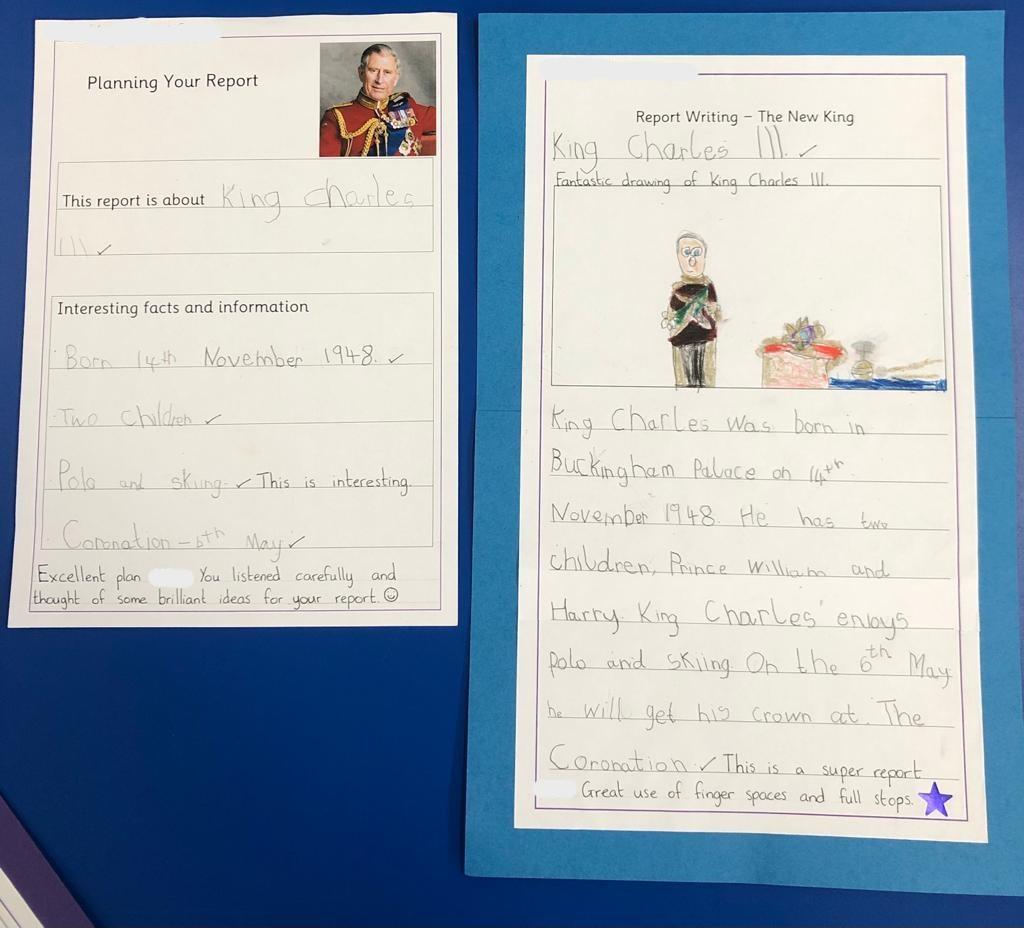 Planning Your Report
This report is about King Charles
III ✓
Interesting facts and information
Born 14th November 1948. ✓
Two children ✓
Polo and skiing. ✓ This is interesting.
Coronation – 6th May ✓
Excellent plan You listened carefully and
thought of some brilliant ideas for your report. ☺
Report Writing – The New King
King Charles III. ✓
Fantastic drawing of King Charles III.
King Charles was born in
Buckingham Palace on 14th
November 1948. He has two
children, Prince William and
Harry. King Charles enjoys
polo and skiing. On the 6th May
he will get his crown at. The
Coronation. ✓ This is a super report
Great use of finger spaces and full stops.